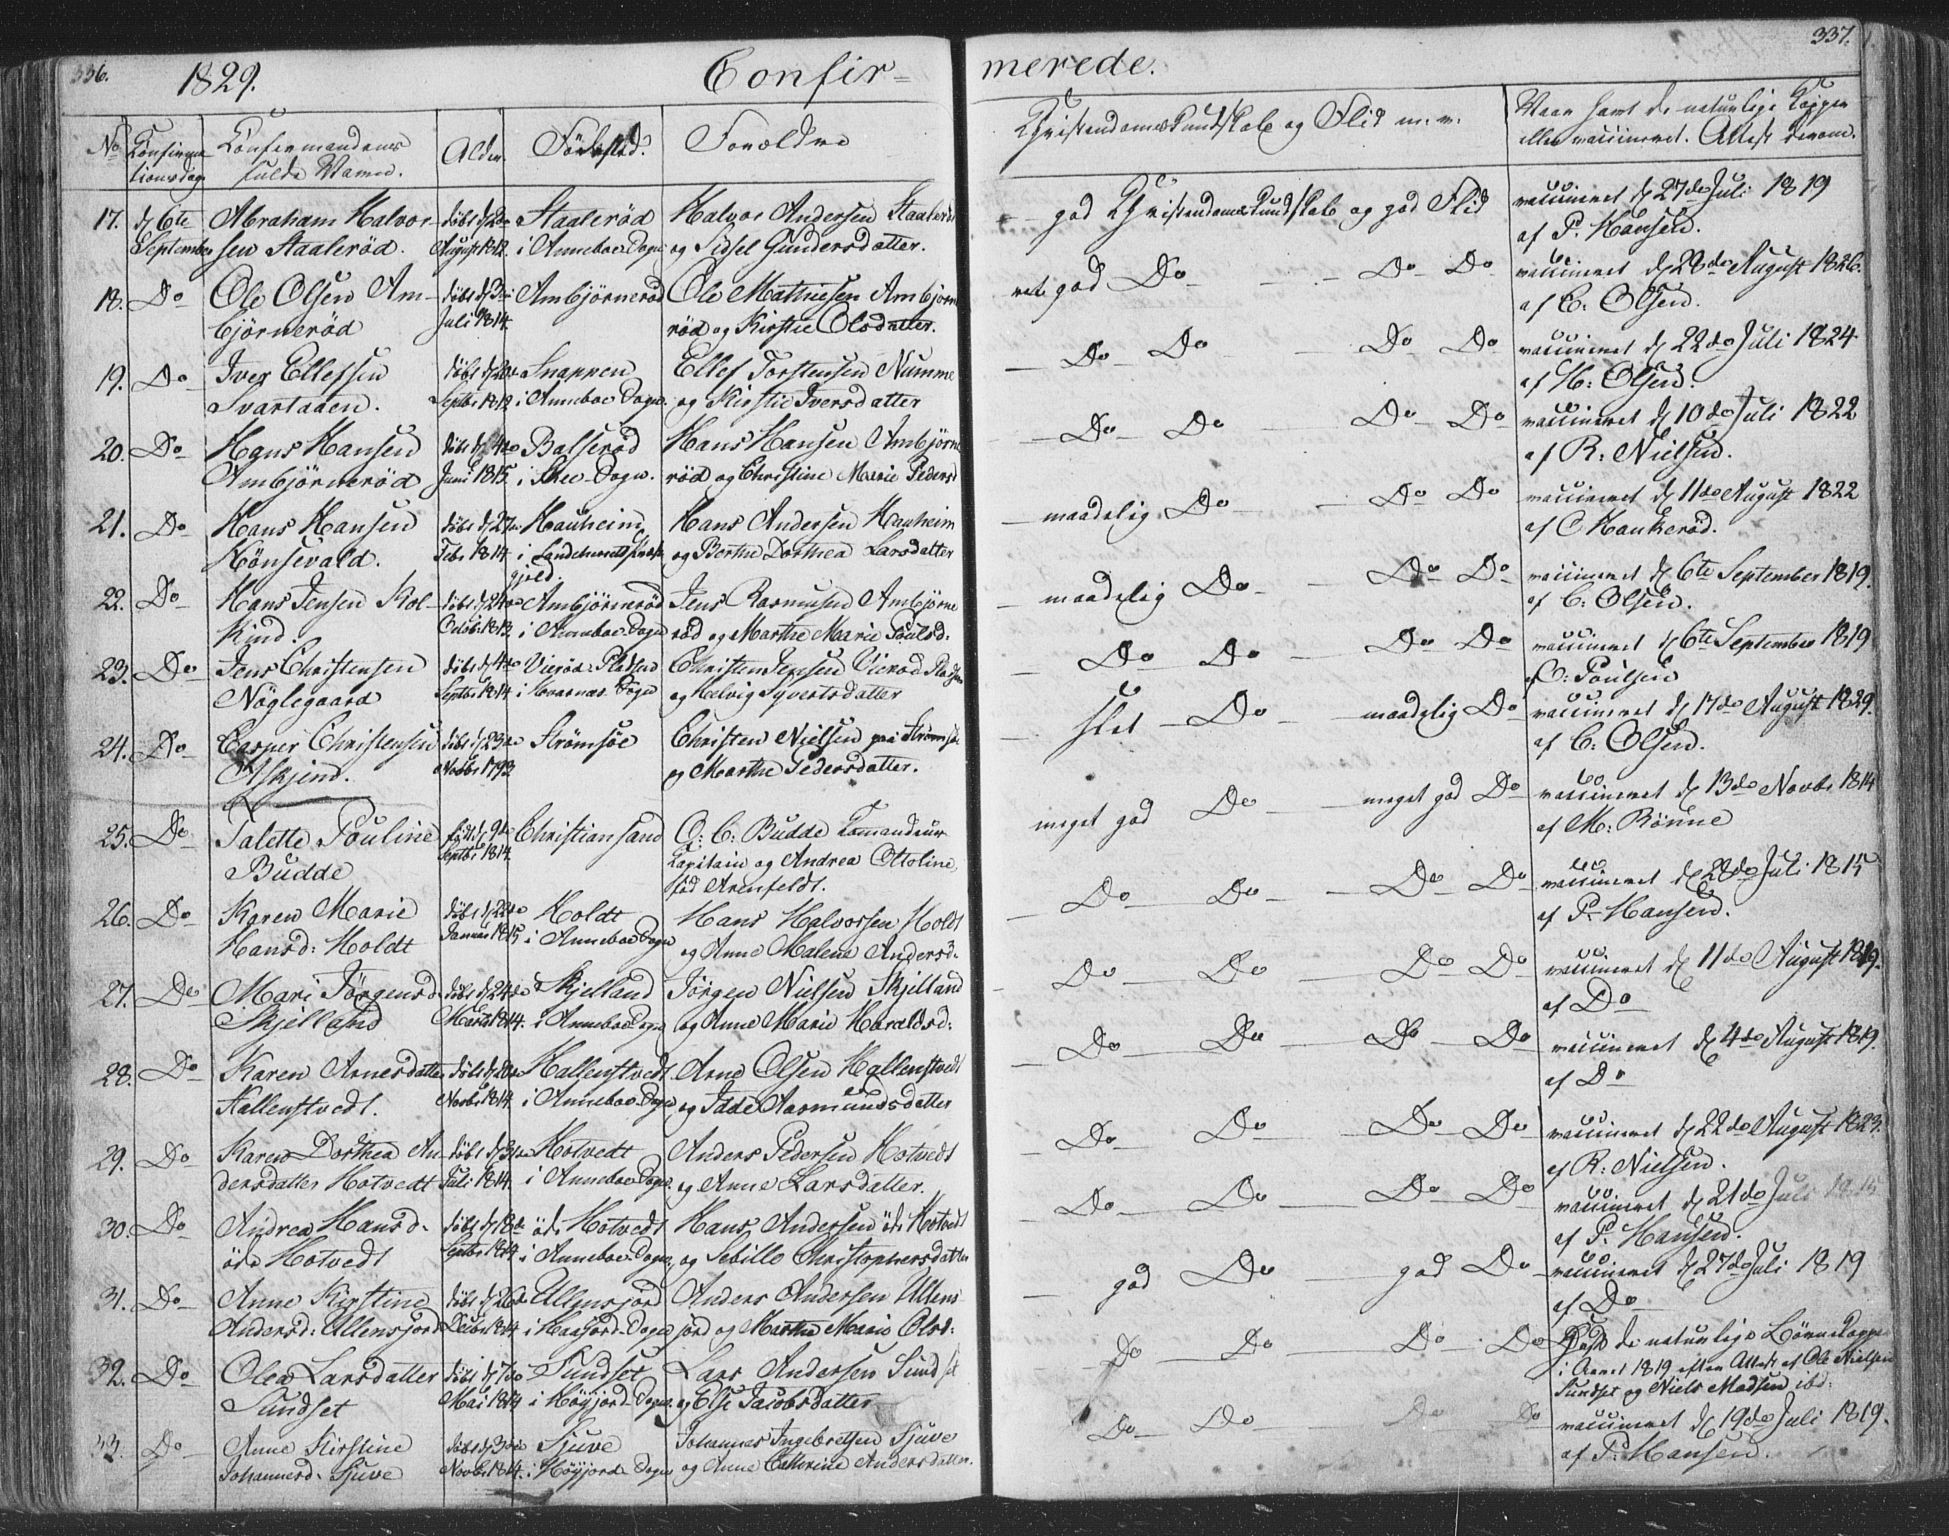 336. 1829. Confir=
No Confirma tionsdag Confirmandens fulde Navne. Alder. Födested. Forældre
17. d 6te September Abraham Halvor- sen Staalerød. döbt d 2den August 1812. Staalerød i Anneboe Sogn Halvor Andersen Staalerød og Sidsel Gundersdatter.
18. Do Ole Olsen Am- bjørnerød döbt Juli 1814. Ambjørnerød Ole Mathiesen Ambjørne rød og Kirstie Olsdatter.
19. Do Iver Ellefsen Svartaaen. döbt Septbr 1812 Snappen i Anneboe Sogn. Ellef Torstensen Numme og Kirstie Iversdatter
20. Do Hans Hansen Ambjørnerød döbt d 4de Juni 1815. Balserød i Skee Sogn. Hans Hansen Ambjørne rød og Christine Marie Pedersd
21. Do Hans Hansen Hönsevald. döbt d 27de Febr 1814. Hauheim i gjeld. Hans Andersen Hauheim og Berthe Dorthea Larsdatter
22. Do Hans Jensen Kol- kind. döbt d 24de Octob: 1813 Ambjørnerød i Anneboe Sogn Jens Rasmusen Ambjørne rød og Marthe Marie Poulsd:
23. Do Jens Christensen Nöglegaard döbt d 4de Septbr 1814 Vierød Pladsen i Kvarnæs Sogn Christen Jensen Vierød Pladsen og Helvig Syvertsdatter
24. Do Casper Christensen Askjend. döbt d 23de Novbr 1793 Strömsöe Christen Nielsen paa Strømsø og Marthe Pedersdatter.
25. Do Talette Pouline Budde født d 9de Septbr 1814. Christiansand O: C: Budde Comandeur Capitain og Andrea Ottoline, fød Arenfeldt.
26. Do Karen Marie Hansd: Holdt döbt d 22de Januar 1815 Holdt i Anneboe Sogn Hans Halvorsen Holdt og Anne Malene Andersd.
27. Do Mari Jörgensd. Skjelland döbt d 24de Marts 1814. Skjelland i Anneboe Sogn Jörgen Nielsen Skjelland og Anne Marie Haraldsd:
28. Do Karen Arnesdatter Hallenstvedt. döbt d 20de Novbr 1814. Hallenstvedt i Anneboe Sogn Arne Olsen Hallenstvedt og Idde Aasmundsdatter
29. Do Karen Dorthea An dersdatter Hotvedt döbt d 31te Juli 1814. Hotvedt i Anneboe Sogn. Anders Pedersen Hotvedt og Anne Larsdatter.
30. Do Andrea Hansd. öde Hotvedt döbt d 18de Septbr 1814 öde Hotvedt i Anneboe Sogn, Hans Andersen öde Hotvedt og Sebille Christophersdatter
31. Do Anne Kirstine Andersd: Ullensjord döbt d 26de Decbr 1814 Ullensjord i Haasjord Sogn Anders Andersen Ullens jord og Marthe Marie Olsd:
32. Do Olea Larsdatter Sundset döbt d 7de Mai 1814 Sundset i Høyjord Sogn. Lars Andersen Sundset og Else Jacobsdatter
33. Do Anne Kirstine Johannesd. Sjuve döbt d 30te Novbr 1814. Sjuve i Høyjord Sogn Johannes Ingebretsen Sjuve og Anne Cathrine Andersdatter.
merede. 337.
Christendomskundskab og Flid m. v. Naar havt de naturlige Kopper eller vaccineret. Attest derom.
god Christendomskundskab og god Flid vaccineret d 27de Juli 1819 af P. Hansen.
god Do Do Do vaccineret d 28de August 1826. af C: Olsen.
Do Do Do Do vaccineret d 22de Juli 1824 af H: Olsen.
Do Do Do Do vaccineret d 10de Juli 1822 af R: Nielsen.
maadelig Do Do Do vaccineret d 11de August 1822 af C Haukerød.
maadelig Do Do Do vaccineret d 6te September 1819. af C: Olsen.
Do Do Do Do vaccineret d 6te September 1819 af C: Poulsen
slet Do maadelig Do vaccineret d 17de August 1829. af C: Olsen.
meget god Do meget god Do vaccineret d 13de Novbr 1814 af M: Rönne
Do Do Do Do vaccineret d 28de Juli 1815 af P. Hansen.
Do Do Do Do vaccineret d 11de August 1819. af Do
Do Do Do Do vaccineret d 4de August 1819. af Do
Do Do Do Do vaccineret d 22de August 1823. af R: Nielsen.
Do Do Do Do vaccineret d 21de Juli af P. Hansen.
god Do god Do vaccineret d 27de Juli 1819 af Do
Do Do Do Do havt de naturlige Börnekopper i Aaret 1819 efter Attest af Ole Nielsen Sundset og Niels Madsen ibd:
Do Do Do Do vaccineret d 19de Juli 1819. af P. Hansen.